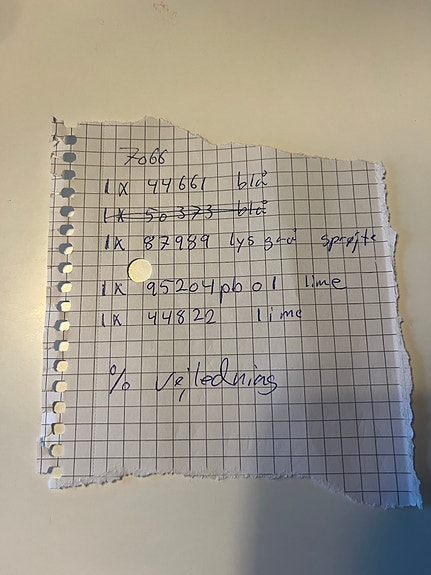 7066
1x 44661 blå
1x 50373 blå
1x 87989 lys grå sprøjte
1x 95204pb01 lime
1x 44822 lime
% vejledning